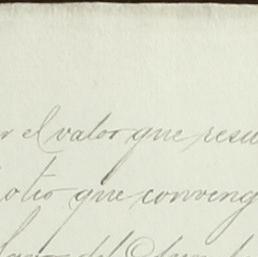 r el valor que resu
otro que conveng
del